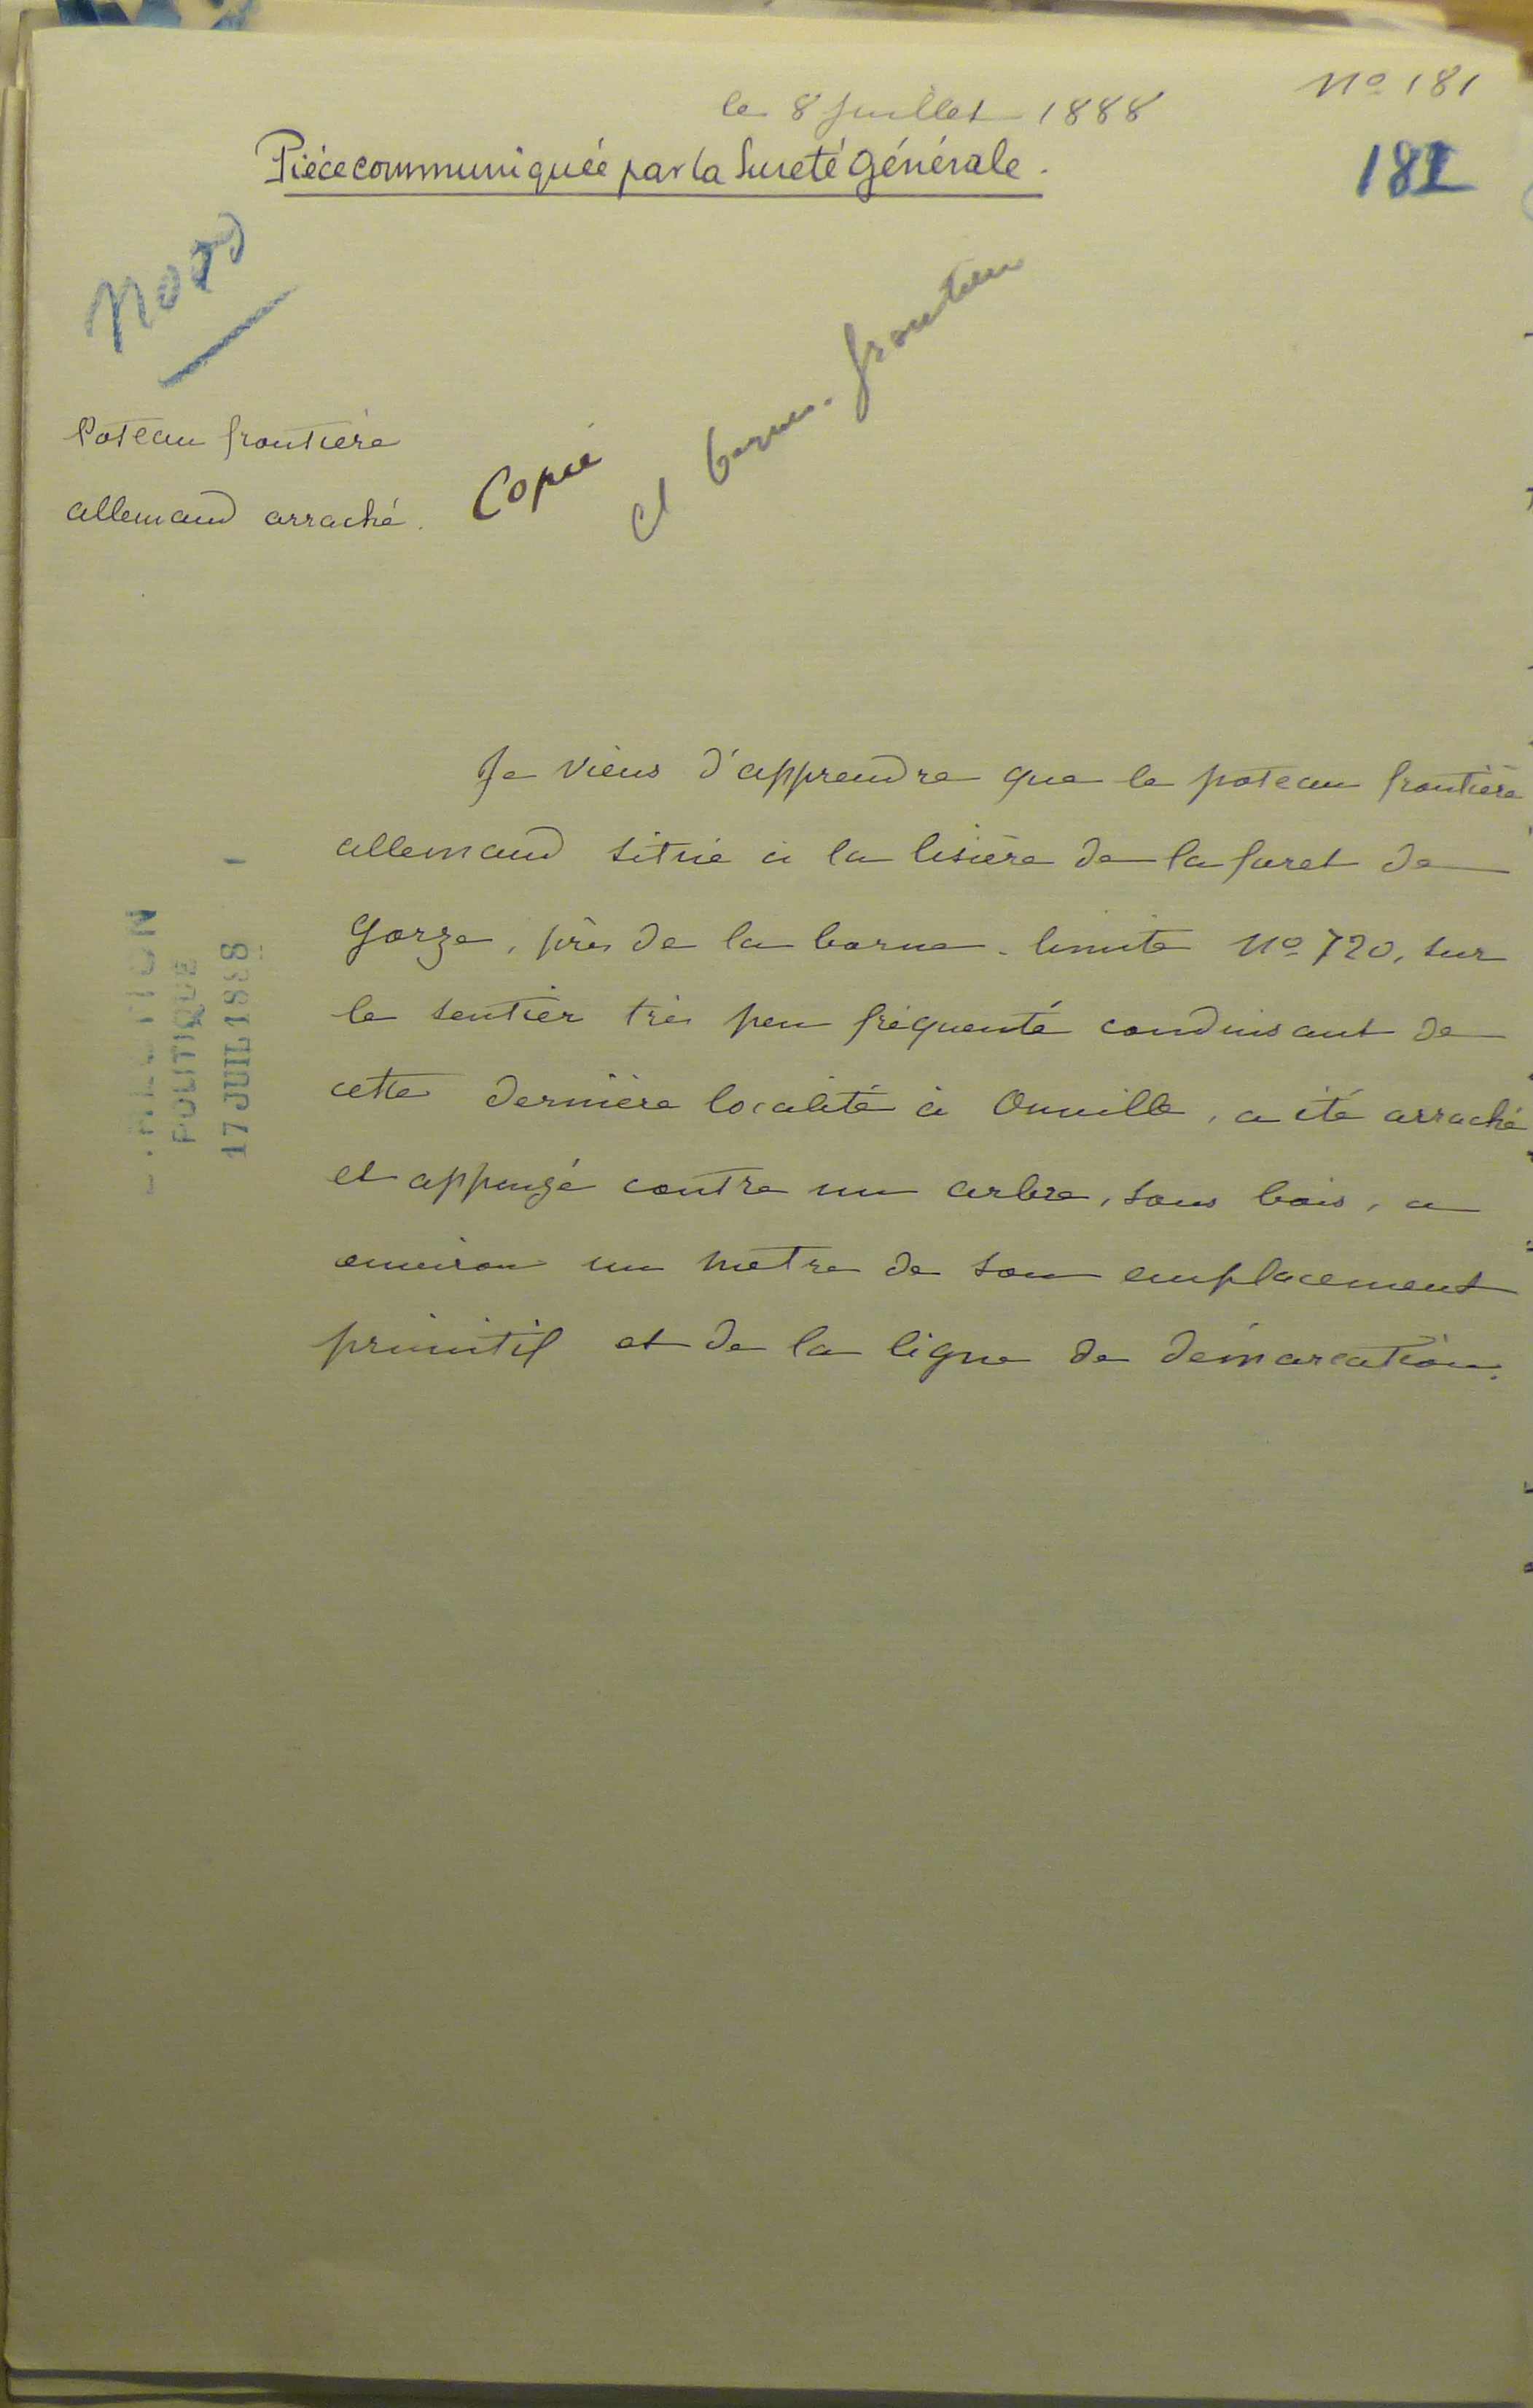 le 8 Juillet 1888
No 181
181
Pièce communiquée par la Sureté Générale.
Nord
Poteau frontière
allemand arraché.
Copié
cl bornes-frontière
Je viens d'apprendre que le poteau frontière
allemand situé à la lisière de la foret de
Gorze, près de la borne-limite No 720, sur
le sentier très peu fréquenté conduisant de
cette dernière localité à Onville, a été arraché
et appuyé contre un arbre, sous bois, a
environ un mètre de son emplacement
primitif et de la ligne de démarcation.
POLITIQUE
17 JUIL 1888